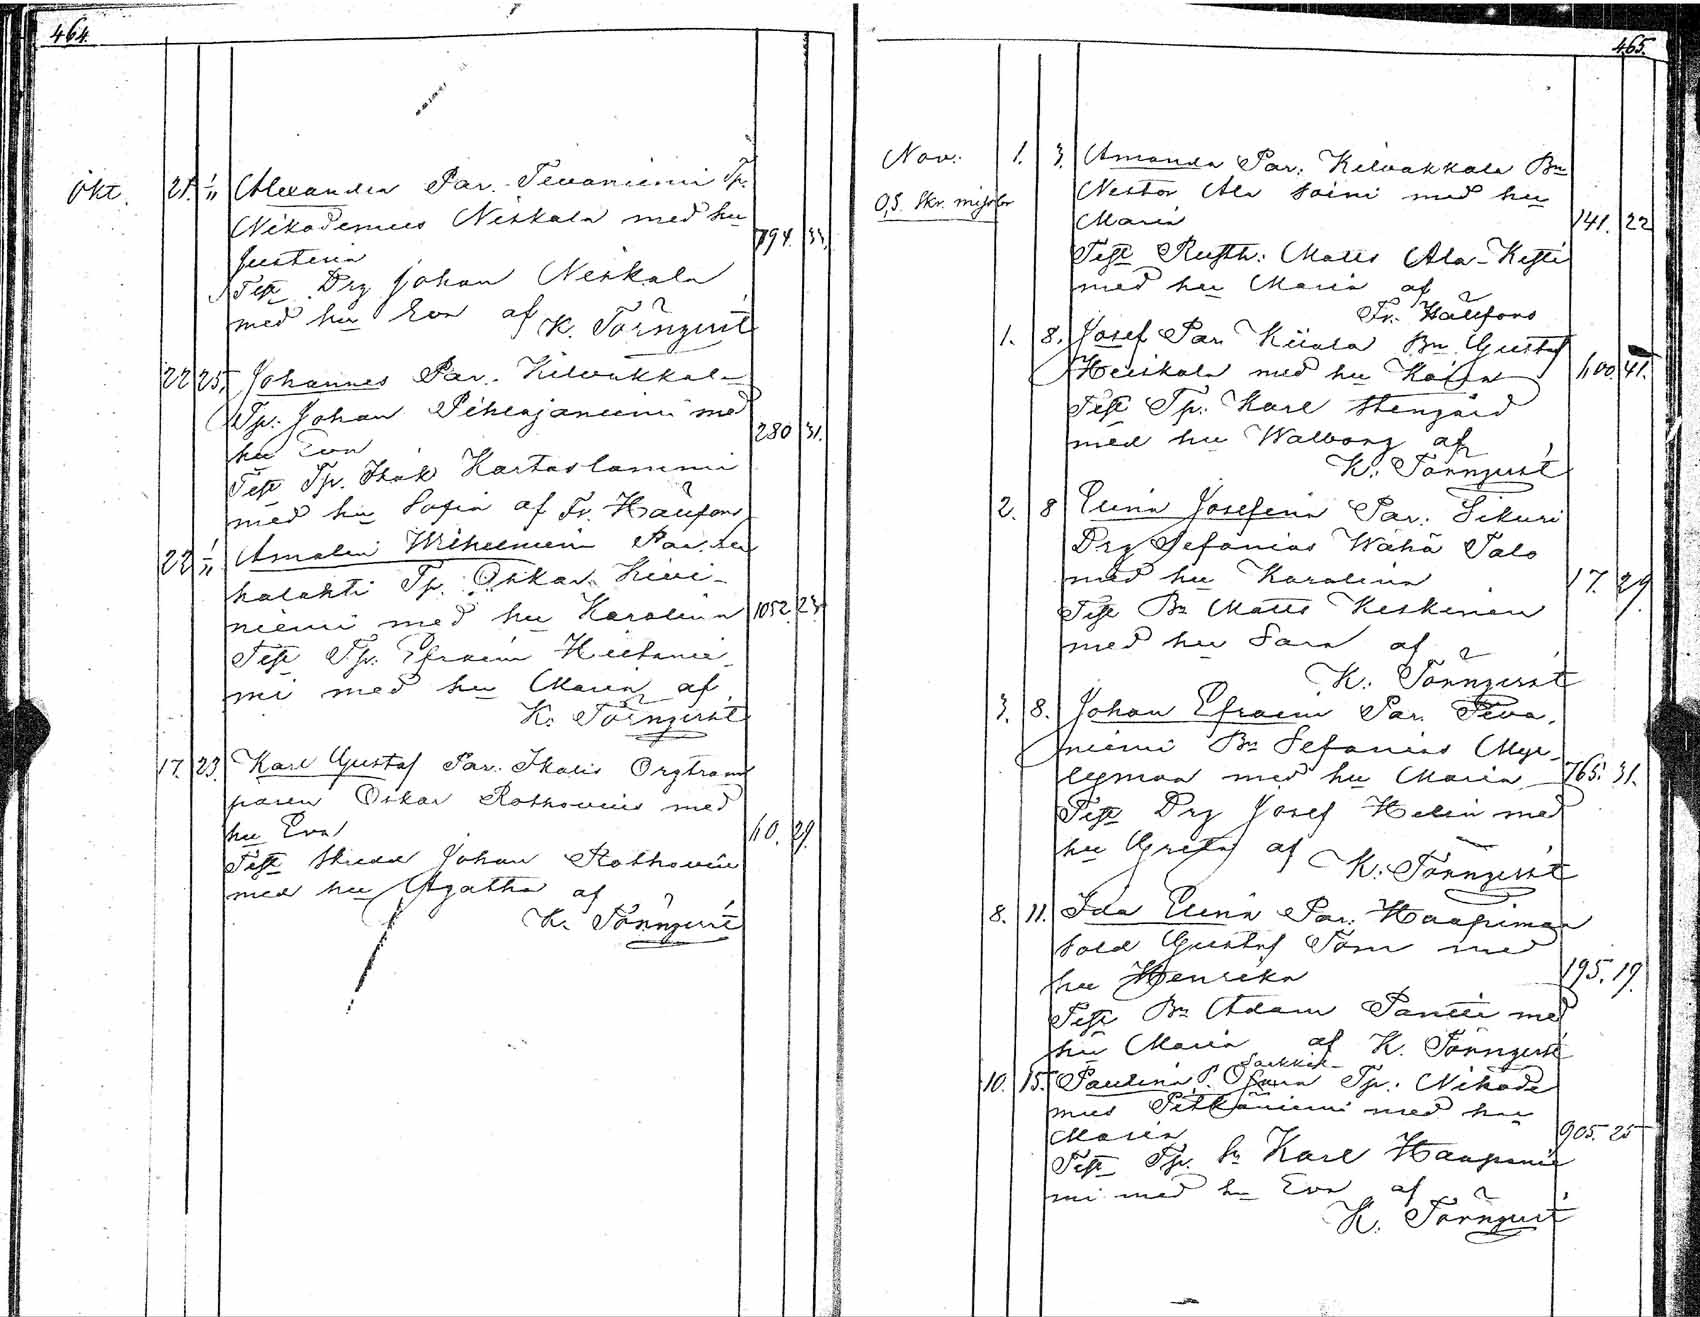 464.
Okt. 21. 1/11 Alexandra Par. Tevaniemi Tp.
Nikodemus Niskala med hu
Justina 794. 33.
Test Drg Johan Niskala
med hu Eva af K. Törnqvist
22 25. Johannes Par. Kilvakkala
Tp. Johan Pihlajaniemi med
hu Eva 280 31.
Test Tp. Isak Kartaslammi
med hu Sofia af Fr. Häufors
22 1/11 Amalia Wilhelmina Par.
kalahti Tp. Oskar Kivi-
niemi med hu Karolina 1052. 23.
Test Tp. Efraim Hietanie-
mi med hu Maria af
K. Törnqvist
17. 23. Karl Gustaf Par. Ikalis Orgtram
paren Oskar Rothovius med
hu Eva 40. 29.
Test Skredd Johan Rothovius
med hu Agatha af
K. Törnqvist
465.
Nov. 1. 3. Amanda Par. Kilvakkala Bn
O,S. Skr. Nestor Ala Soini med hu
Maria 141. 22
Test Rusth. Matts Ala-Kesti
med hu Maria af
Fr. Häufors
1. 8. Josef Par. Kiiala Bn Gustaf
Heiskala med hu Kajsa 400. 41.
Test Tp. Karl Stengård
med hu Walborg af
K. Törnqvist
2. 8 Elina Josefina Par. Sikuri
Drg Sefanias Wähä Talo
med hu Karolina 17. 29
Test Bn Matts Keskinen
med hu Sara af
K. Törnqvist
3. 8. Johan Efraim Par. Teva-
niemi Bn Sefanias Myl-
lymaa med hu Maria 765. 31.
Test Drg Josef Helin med
hu Greta af K. Törnqvist
8. 11. Ida Elina Par. Haapimaa
Sold Gustaf Tom med
hu Henrika 195. 19.
Test Bn Adam Pantti med
hu Maria af K. Törnqvist
Sarkkik-
10. 15. Paulina P. Tp. Nikode
mus Pitkäniemi med hu
Maria 905. 25
Test Tp. Sn Karl Haapanie
mi med hu Eva af
K. Törnqvist